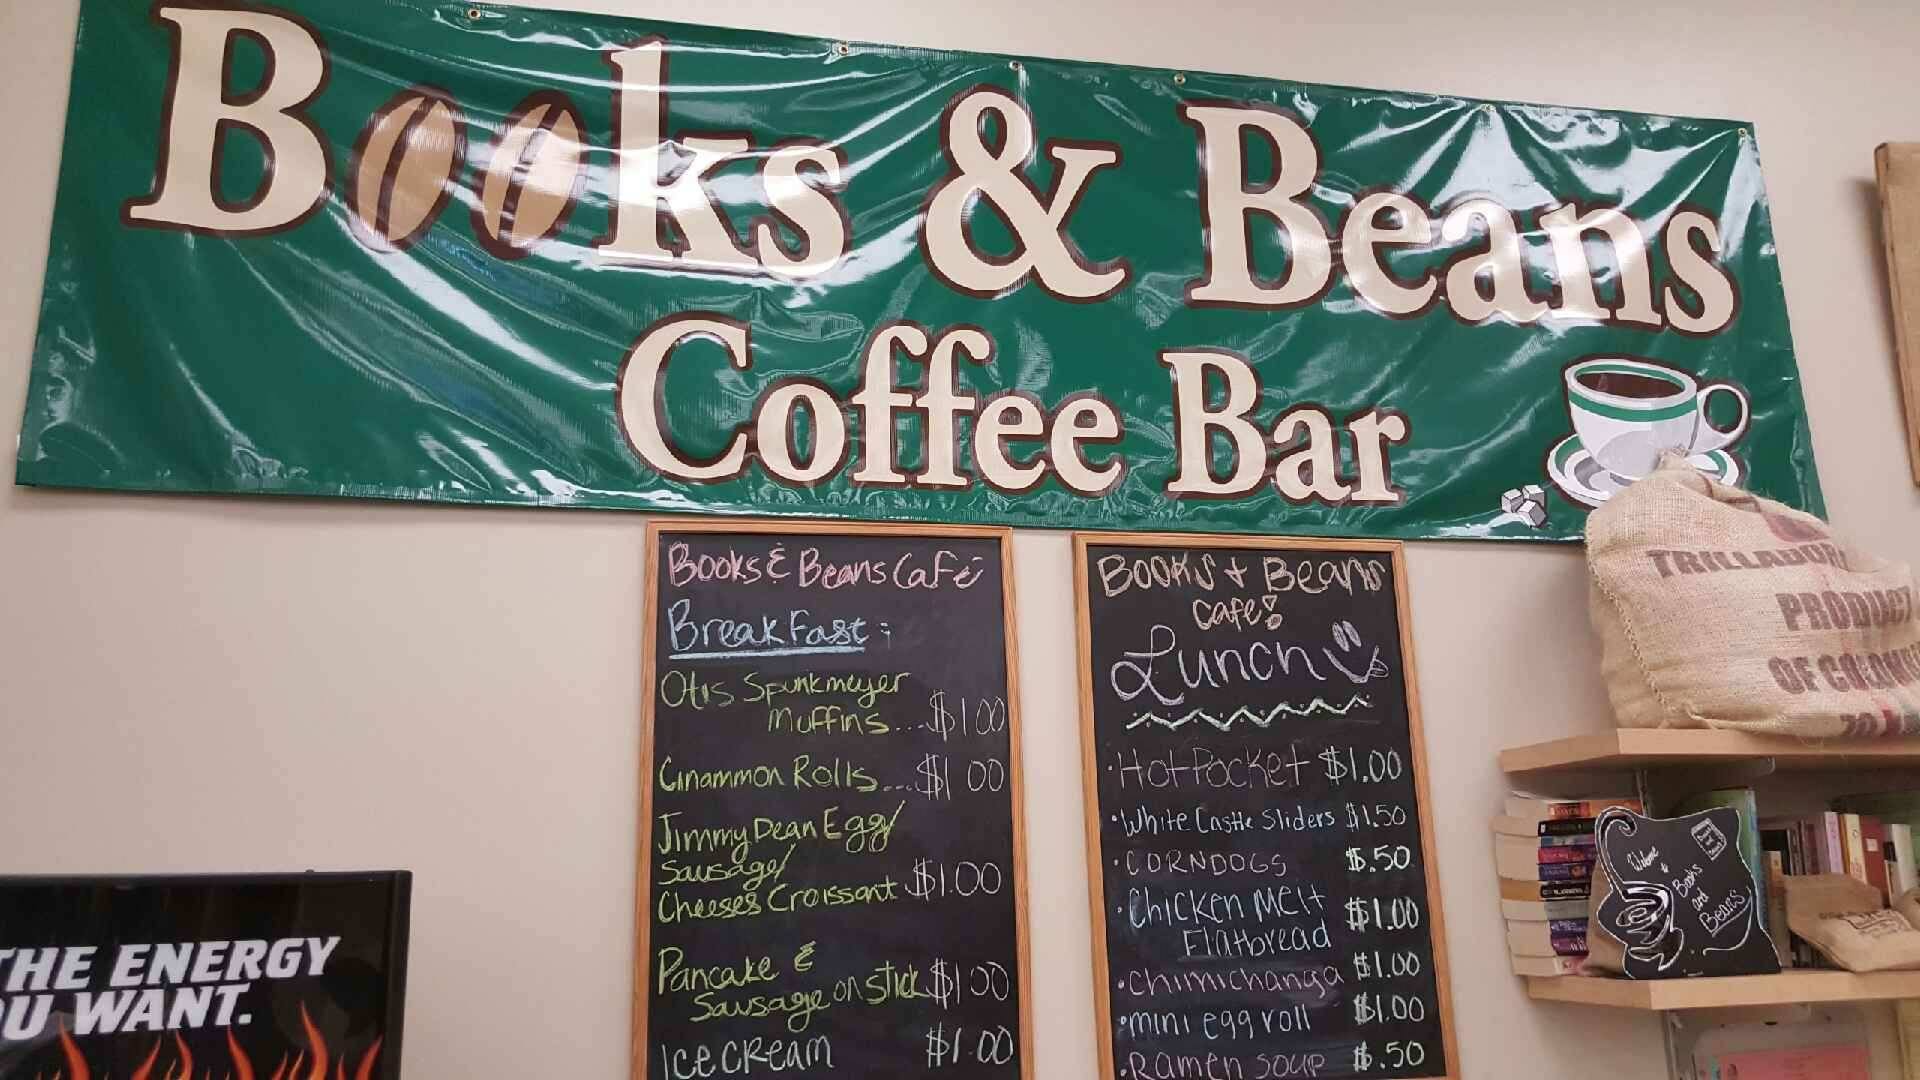 Books & Beans
Coffee Bar
Books & Beans Café
Breakfast:
Otis Spunkmeyer
Muffins...$1.00
Cinammon Rolls...$1.00
Jimmy Dean Egg/
Sausage/
Cheeses Croissant $1.00
Pancake &
Sausage on stick $1.00
Ice cream $1.00
Books + Beans
Cafe!
Lunch
·Hot Pocket $1.00
·White Castle Sliders $1.50
·CORNDOGS $.50
·Chicken Melt
Flatbread $1.00
·Chimichanga $1.00
·mini egg roll $1.00
·Ramen soup $.50
PRODUCT
THE ENERGY
OU WANT.
Welcome
to
Books
and
Beans